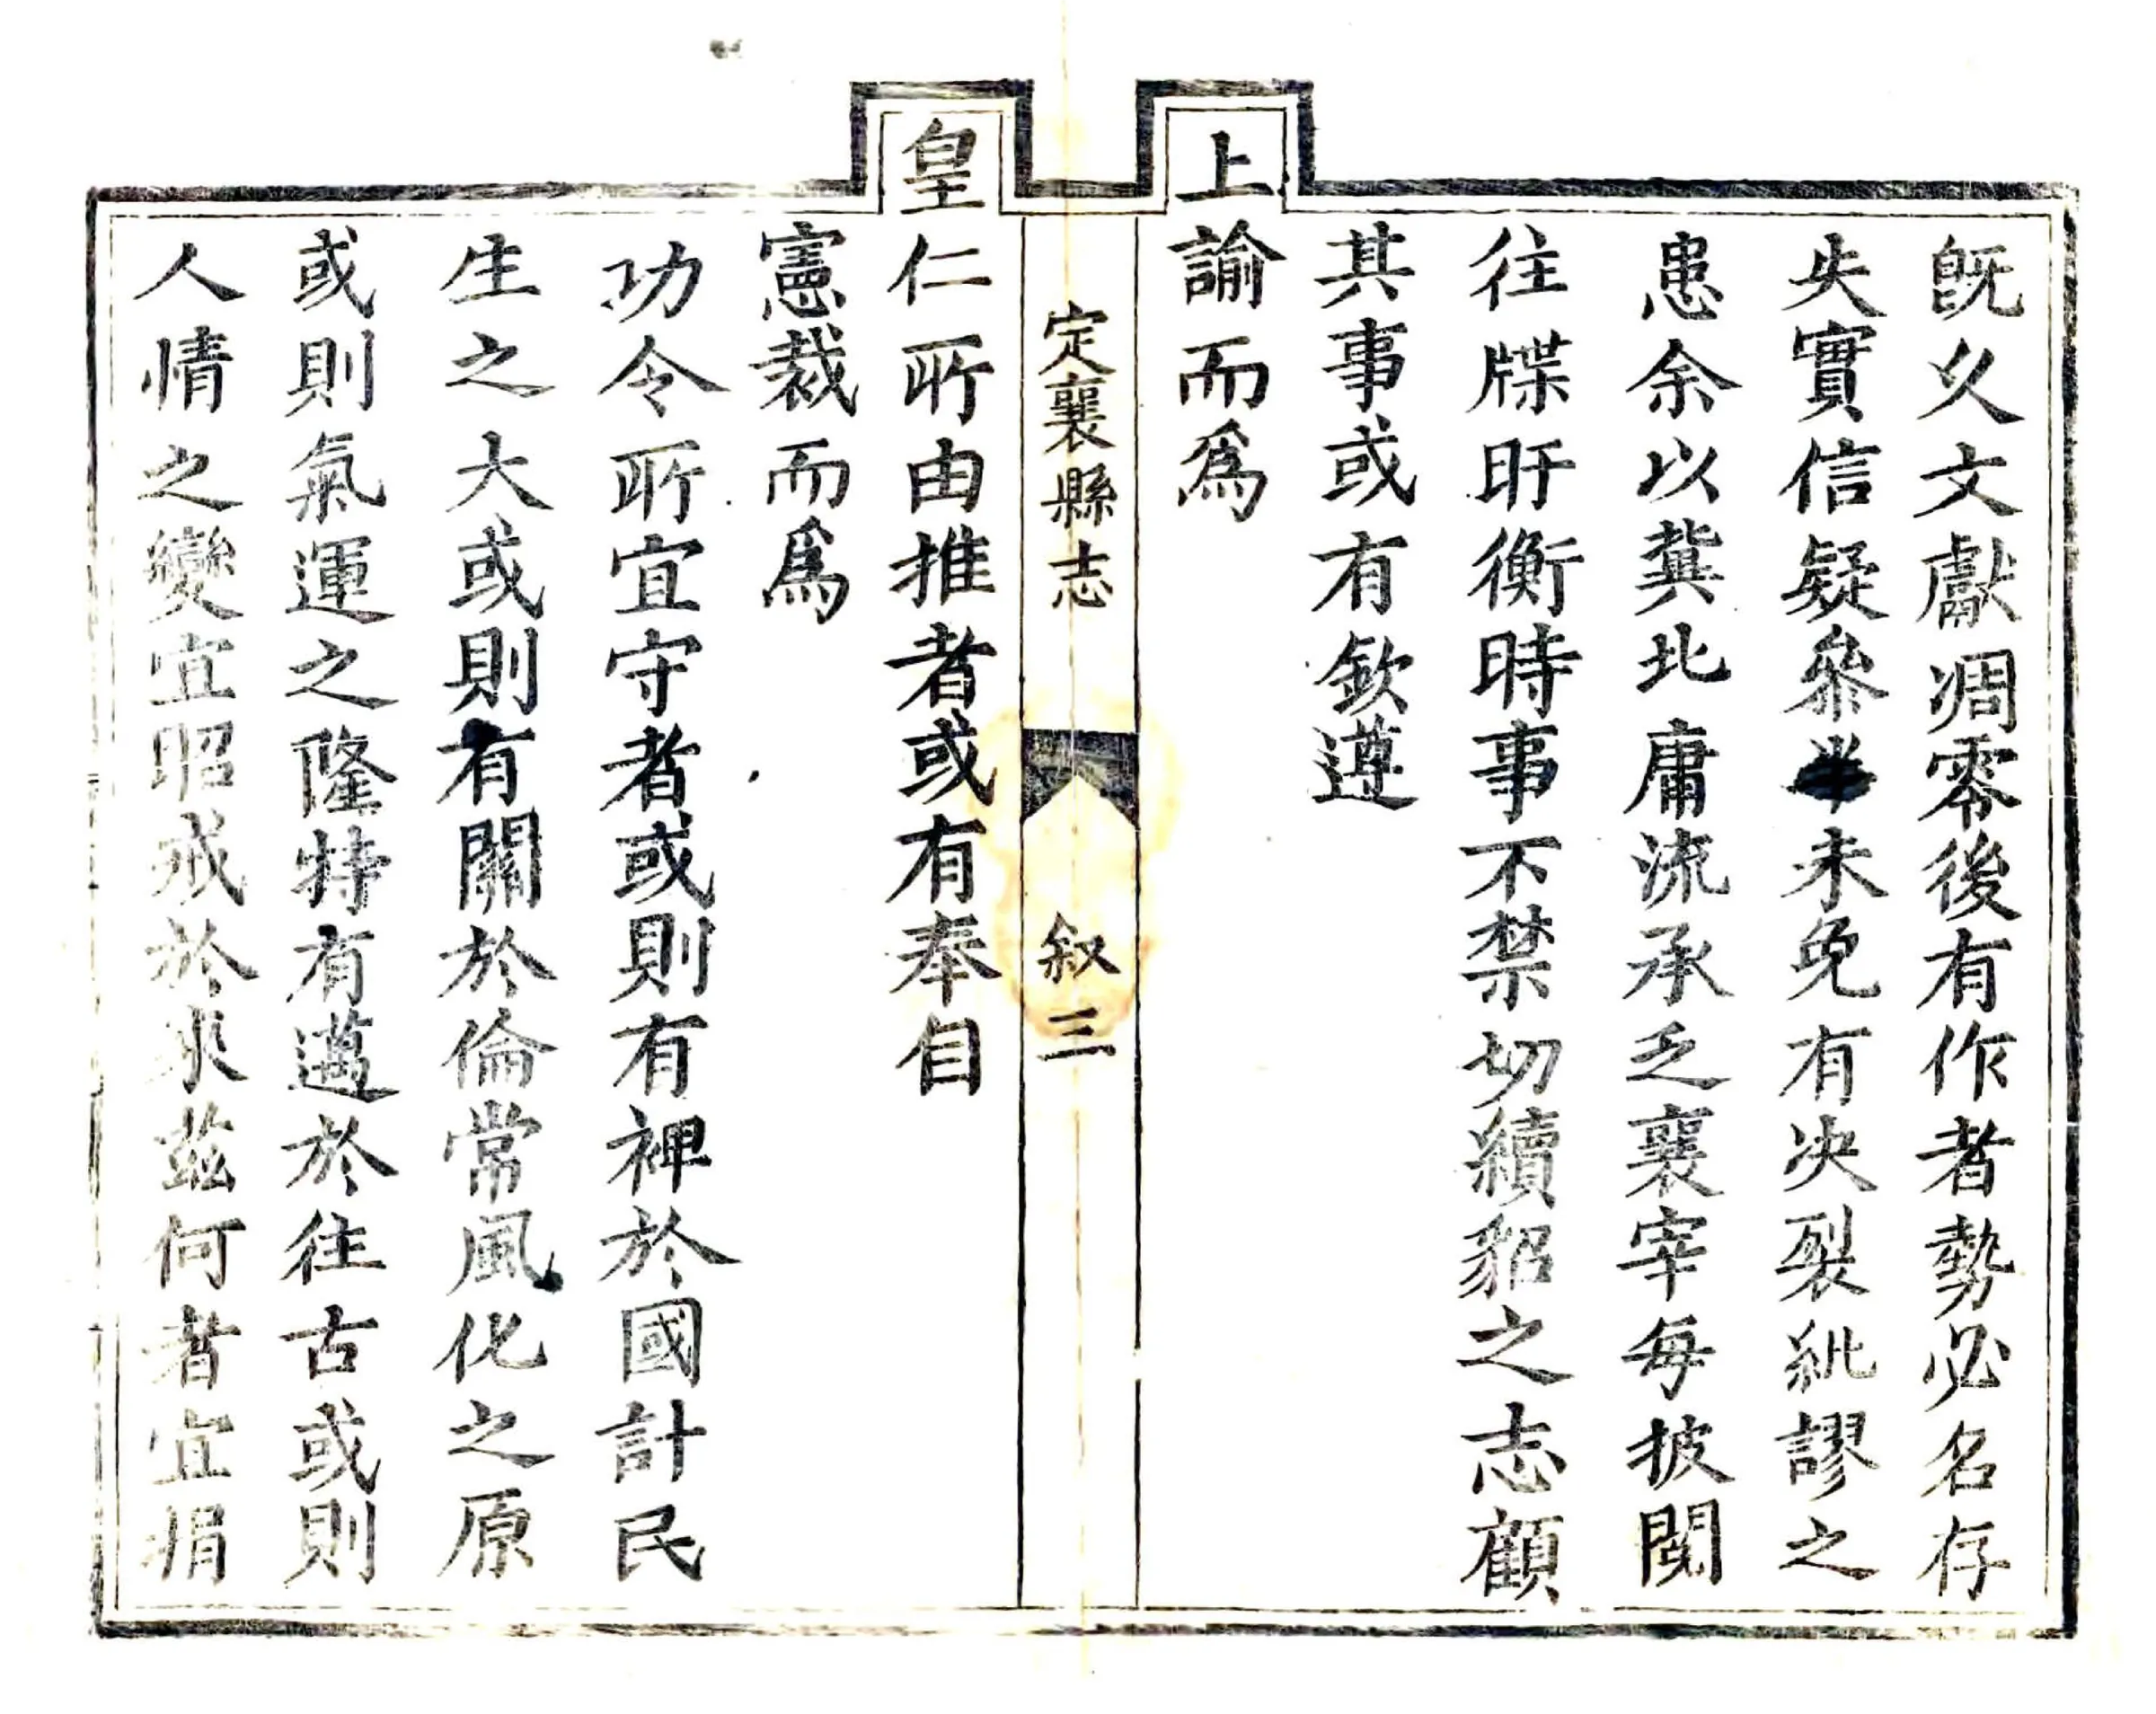 旣久文獻凋零後有作者勢必名存
失實信疑叅半未免有决裂紕謬之
患余以冀北庸流承乏襄宰每披閱
往牒盱衡時事不禁切續貂之志顧
其事或有欽遵
上諭而爲
定襄縣志 叙 三
皇仁所由推者或有奉自
憲裁而爲
功令所宜守者或則有裨於國計民
生之大或則有關於倫常風化之原
或則氣運之隆特有邁於往古或則
人情之變宜昭戒於來茲何者宜捐